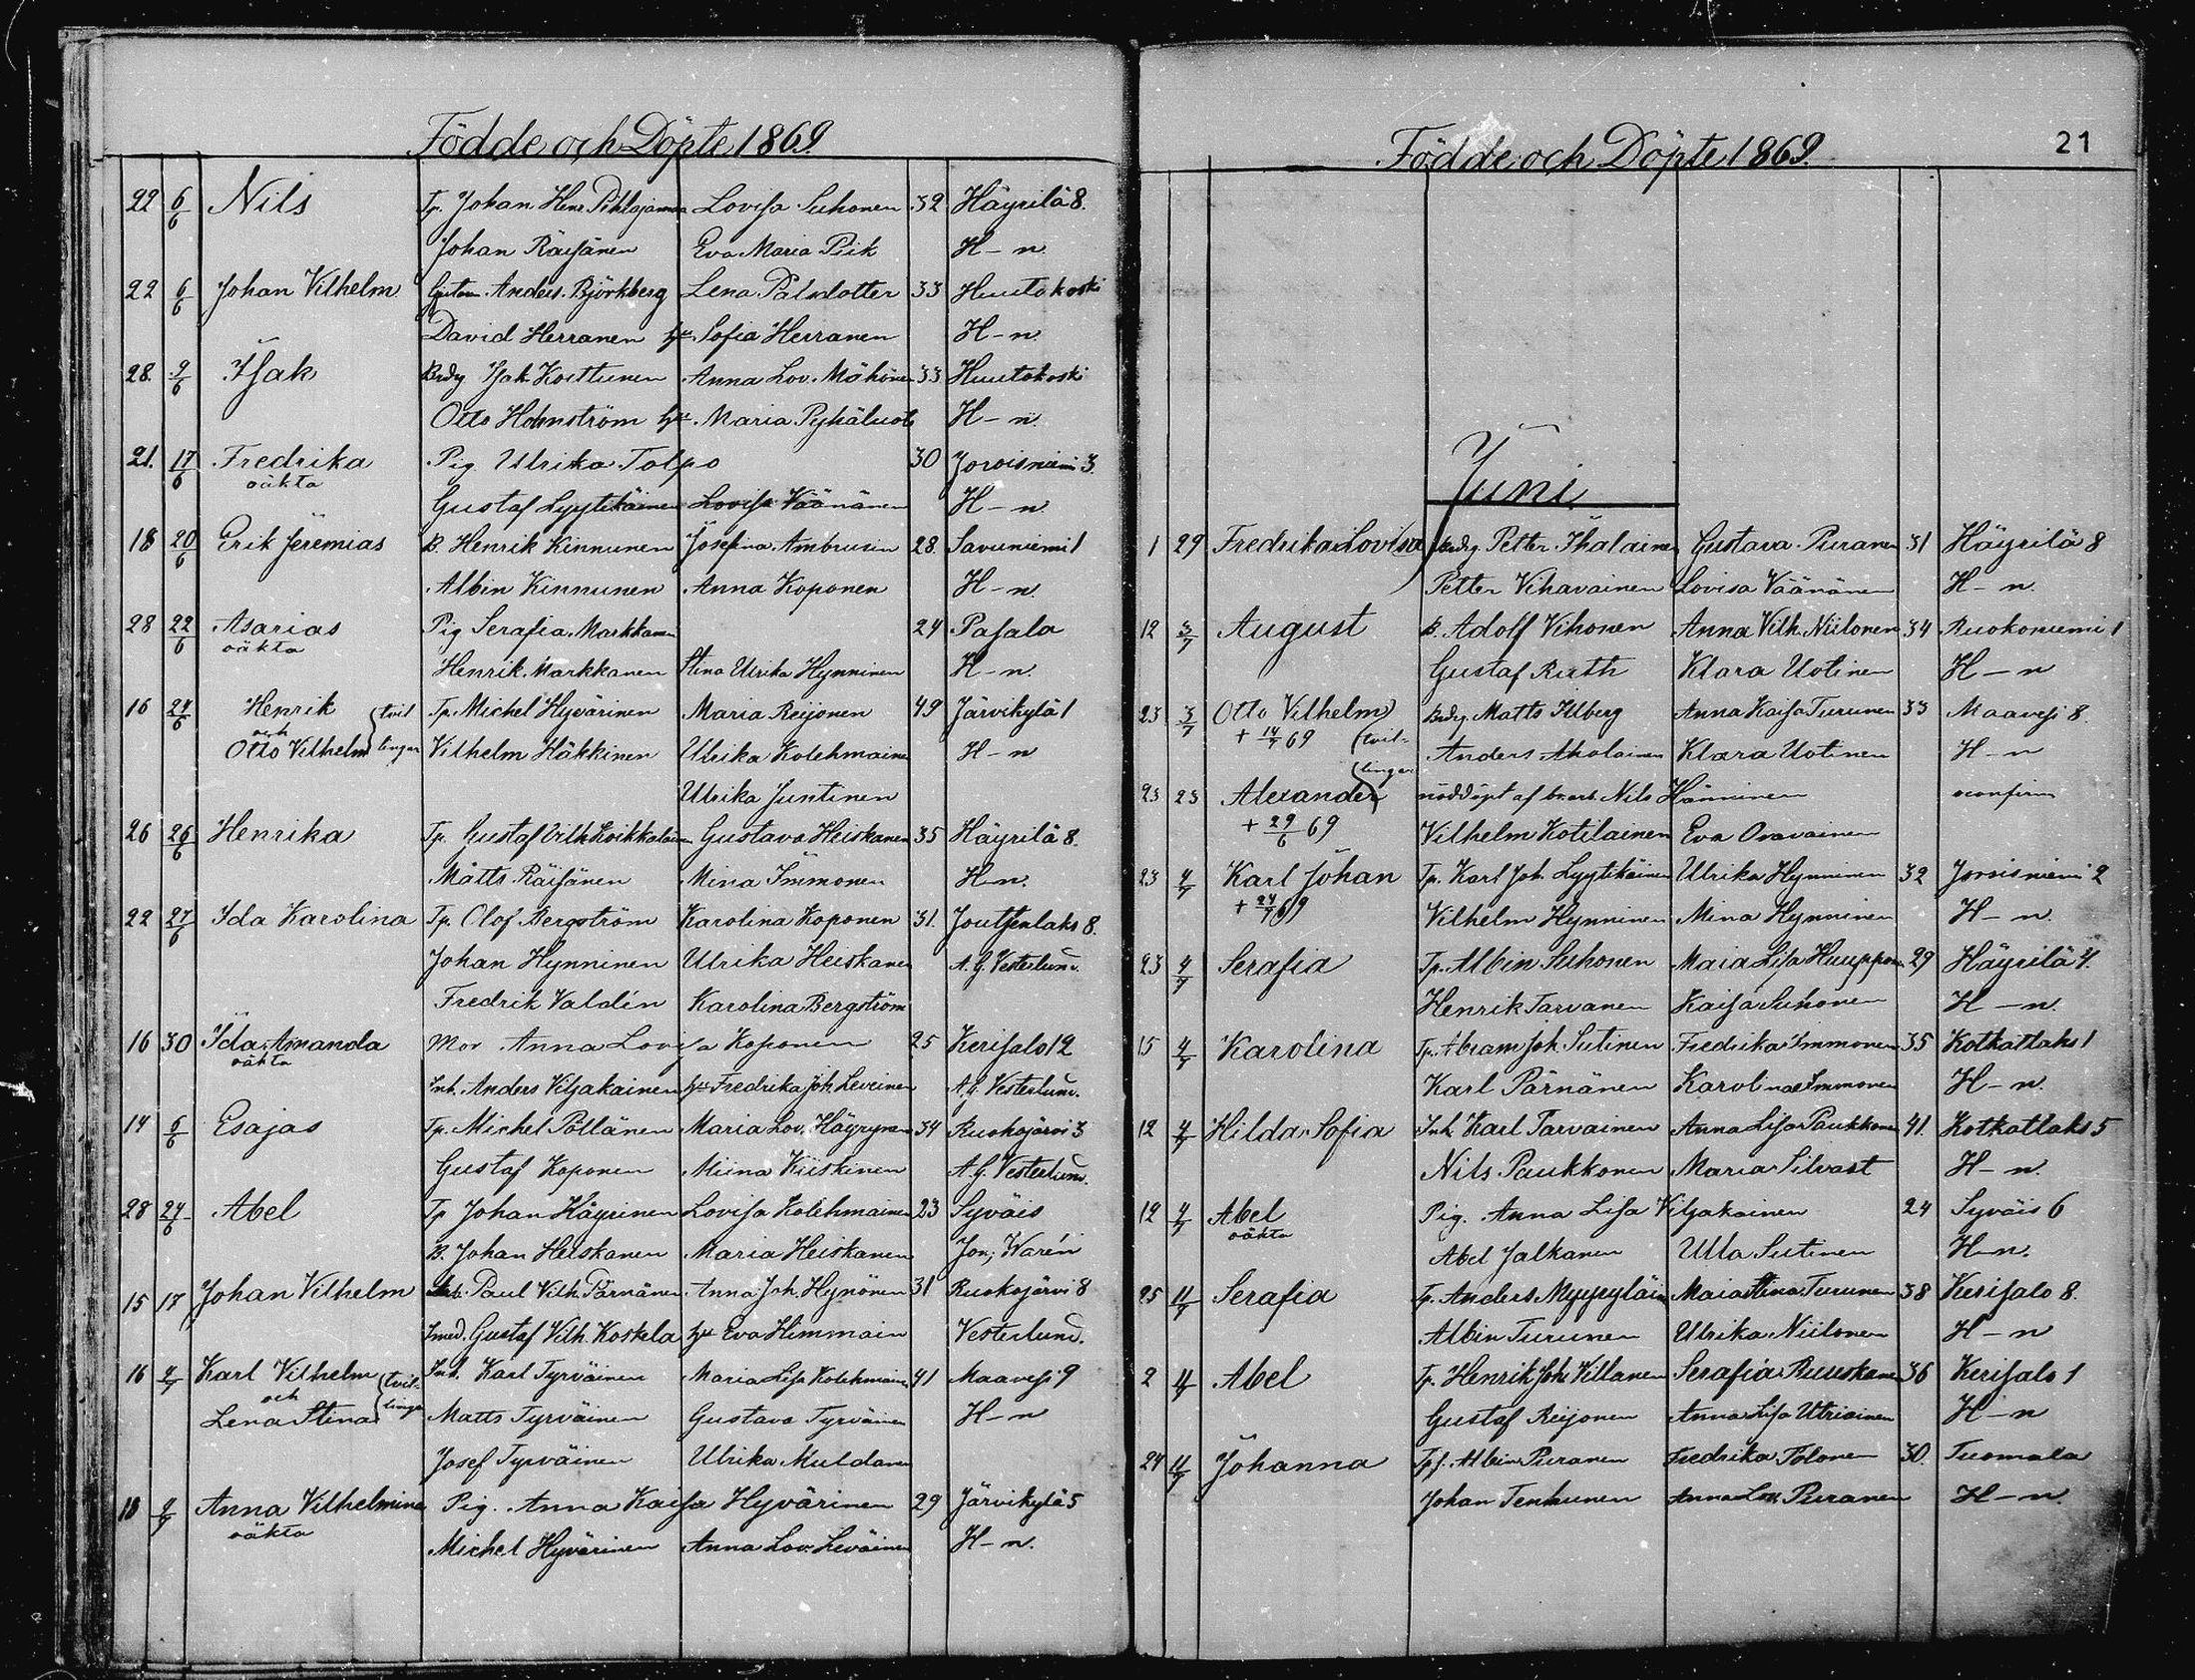 Födde och Döpte 1869.
22 6/6 Nils Tp. Johan Henr. Pihlajamaa Lovisa Suhonen 32 Häyrilä 8.
Johan Räisänen Eva Maria Piik H-n.
22 6/6 Johan Vilhelm Anders Björkberg Lena Pålsdotter 33 Huutokoski
David Herranen hu Sofia Herranen H-n.
28. 9/6 Isak Brdg Isak Kosttunen Anna Lov. Möhönen 33 Huutokoski
Otto Holmström hu Maria Pyhäluoto H-n.
21. 17/6 Fredrika Pig. Ulrika Tolpo 30 Joroisniemi 3.
oäkta
Gustaf Lyytikäinen Lovisa Väänänen H-n.
18 20/6 Erik Jeremias B. Henrik Kinnunen Josefina Ambrusin 28. Savuniemi 1
Albin Kinnunen Anna Koponen H-n.
28 22/6 Asarias Pig Serafia Markkanen 24 Pasala
oäkta
Henrik Markkanen Stina Ulrika Hynninen H-n.
16 24/6 Henrik (tvil Tp. Michel Hyvärinen Maria Reijonen 49 Järvikylä 1
och
Otto Vilhelm lingar Vilhelm Häkkinen Ulrika Kolehmainen H-n
Ulrika Juntinen
26 26/6 Henrika Tp. Gustaf Vilh. Koikkalainen Gustava Heiskanen 35 Häyrilä 8.
Matts Räisänen Mina Immonen H-n.
22 27/6 Ida Karolina Tp. Olof Bergström Karolina Koponen 31. Joutsenlaks 8.
Johan Hynninen Ulrika Heiskanen A. G. Vesterlund.
Fredrik Valdén Karolina Bergström
16 30 Ida Amanda Mor Anna Lovisa Koponen 25 Kerisalo 12
oäkta
Inh. Anders Viljakainen hu Fredrika Joh. Leveinen A. G. Vesterlund.
14 6/6 Esajas Tp. Michel Pöllänen Maria Lov. Häyrynen 34 Ruokojärvi 3
Gustaf Koponen Miina Kiiskinen A. G. Vesterlund.
28 24/6 Abel Tp Johan Häyrinen Lovisa Kolehmainen 23 Syväis
B. Johan Heiskanen Maria Heiskanen Jon; Warén
15 17 Johan Vilhelm Paul Vilh. Pärnänen Anna Joh. Hynönen 31 Ruokojärvi 8
Smed. Gustaf Vilh. Koskela hu Eva Himmain Vesterlund.
16 4/7 Karl Vilhelm (tvil- Inh. Karl Tyrväinen Maria Lisa Kolehmainen 41 Maavesi 9
och
Lena Stina lingar Matts Tyrväinen Gustava Tyrväinen H-n
Josef Tyrväinen Ulrika Muldanen
18 Anna Vilhelmina Pig. Anna Kaisa Hyvärinen 29 Järvikylä 5
oäkta
Michel Hyvärinen Anna Lov. Leväinen H-n.
Födde och Döpte 1869. 21
Juni
1 29 Fredrika Lovisa Brdg. Petter Ihalainen Gustava Puranen 31 Häyrilä 8
Petter Vihavainen Lovisa Väänänen H-n.
12 3/7 August B. Adolf Vihonen Anna Vilh. Niilonen 34 Ruokoniemi 1
Gustaf Ruth Klara Uotinen H-n
23 3/7 Otto Vilhelm Brdg. Matts Illberg Anna Kaisa Turunen 33 Maavesi 8.
+ 14/7 69 (tvil- Anders Aholainen Klara Uotinen H-n
lingar
23 23 Alexander nöddöpt af br. arb. Nils Hänninen oconfirm
+ 29/6 69 Vilhelm Kotilainen Eva Oravainen
23 4/7 Karl Johan Tp. Karl Joh. Lyytikäinen Ulrika Hynninen 32 Joroisniemi 2
+ 24/7 69 Vilhelm Hynninen Mina Hynninen H-n.
23 4/7 Serafia Tp. Albin Suhonen Maia Lisa Huupponen 29 Häyrilä 4.
Henrik Tarvanen Kaisa Suhonen H-n.
15 4/7 Karolina Tp. Abram Joh. Sutinen Fredrika Immonen 35 Kotkatlaks 1
Karl Pärnänen Karolina Immonen H-n.
12 4/7 Hilda Sofia Inh. Karl Tarvainen Anna Lisa Paukkonen 41. Kotkatlaks 5
Nils Paukkonen Maria Silvast H-n.
12 4/7 Abel Pig. Anna Lisa Viljakainen 24 Syväis 6
oäkta
Abel Jalkanen Ulla Sutinen H-n.
25 11/7 Serafia Tp. Anders Myyryläinen Maia Stina Turunen 38 Kerisalo 8.
Albin Turunen Ulrika Niilonen H-n
2 11/7 Abel Tp. Henrik Joh. Villanen Serafia Ruuskanen 36 Kerisalo 1
Gustaf Reijonen Anna Lisa Utriainen H-n
24 11/7 Johanna Tpf. Albin Puranen Fredrika Tolonen 30. Tuomala
Johan Tenhunen Anna Lov. Puranen H-n.